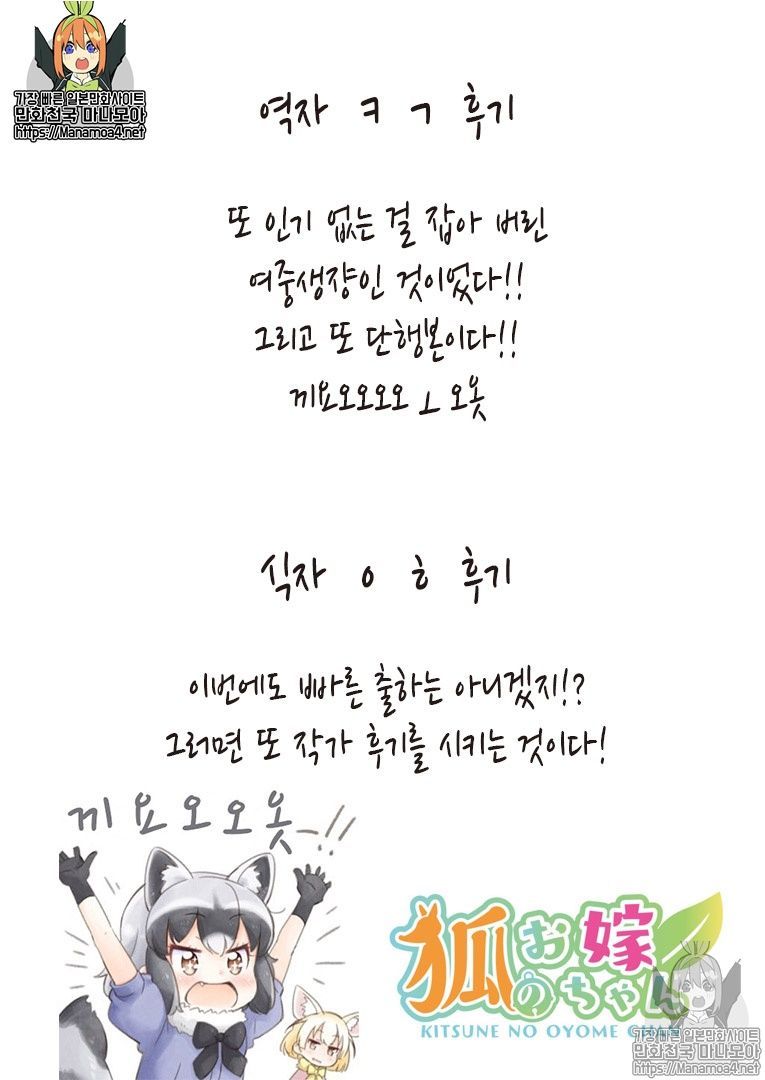 가장 빠른 일본만화사이트
만화천국 마나모아
https://Manamoa4.net
역자 ㅋ ㄱ 후기
또 인기 없는 걸 잡아 버린
여중생쟝인 것이었다!!
그리고 또 단행본이다!!
끼요오오오오ㅗ오옷
식자 ㅇ ㅎ 후기
이번에도 빠른 출하는 아니겠지!?
그러면 또 작가 후기를 시키는 것이다!
끼요오오옷-!!
狐のお嫁ちゃん
KITSUNE NO OYOME CHAN
가장 빠른 일본만화사이트
만화천국 마나모아
https://Manamoa4.net